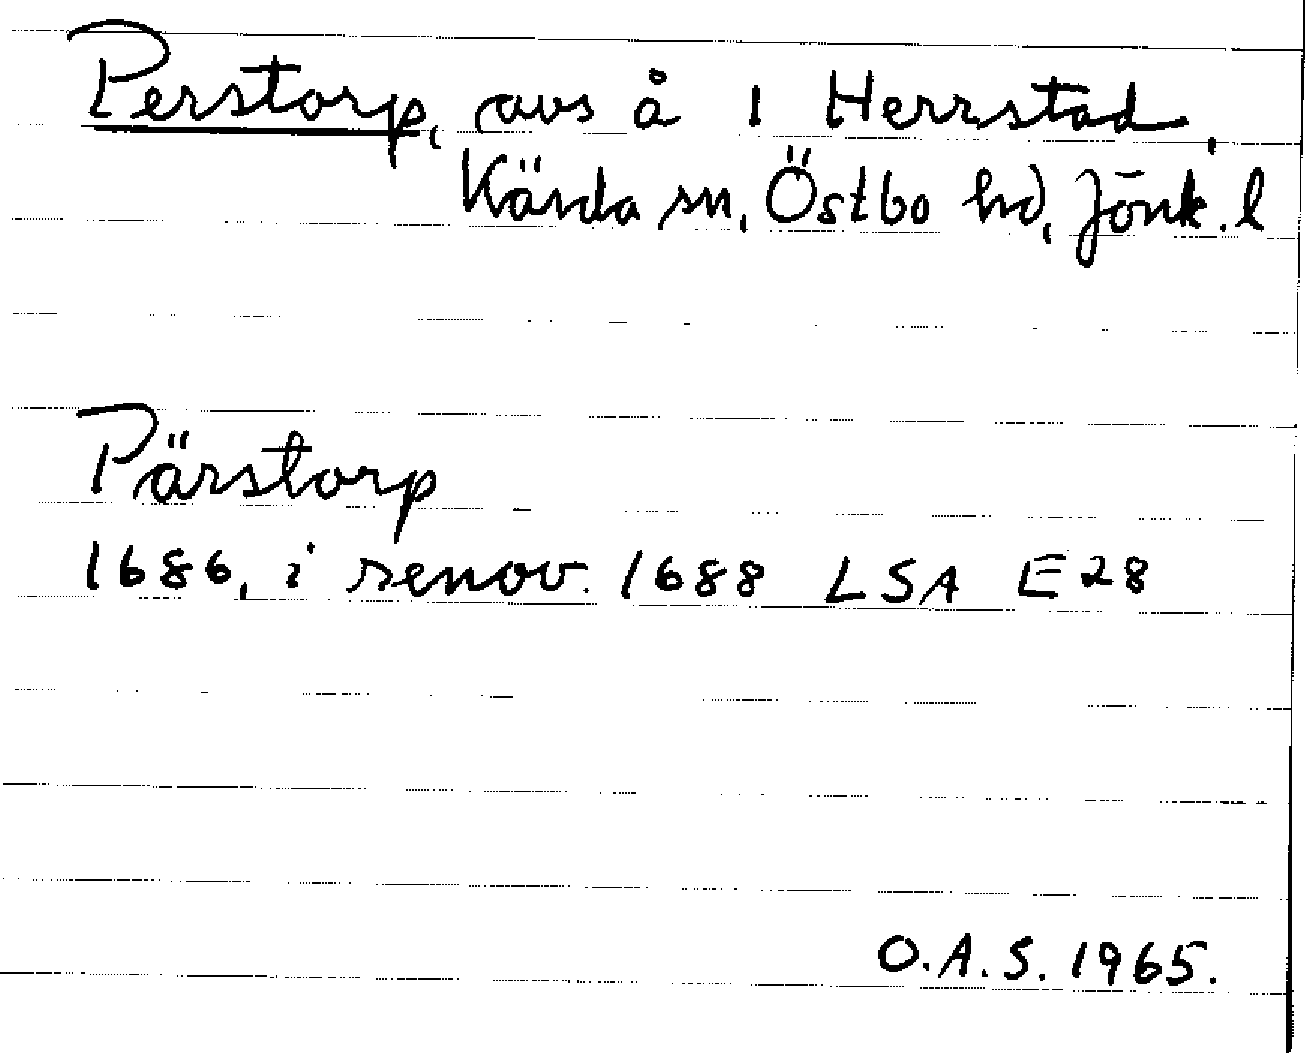 Perstorp, avs å 1 Herrstad,
Kärda sn, Östbo hd, Jönk. l
Pärstorp
1686, i renov. 1688 LSA E28
O.A.S. 1965.